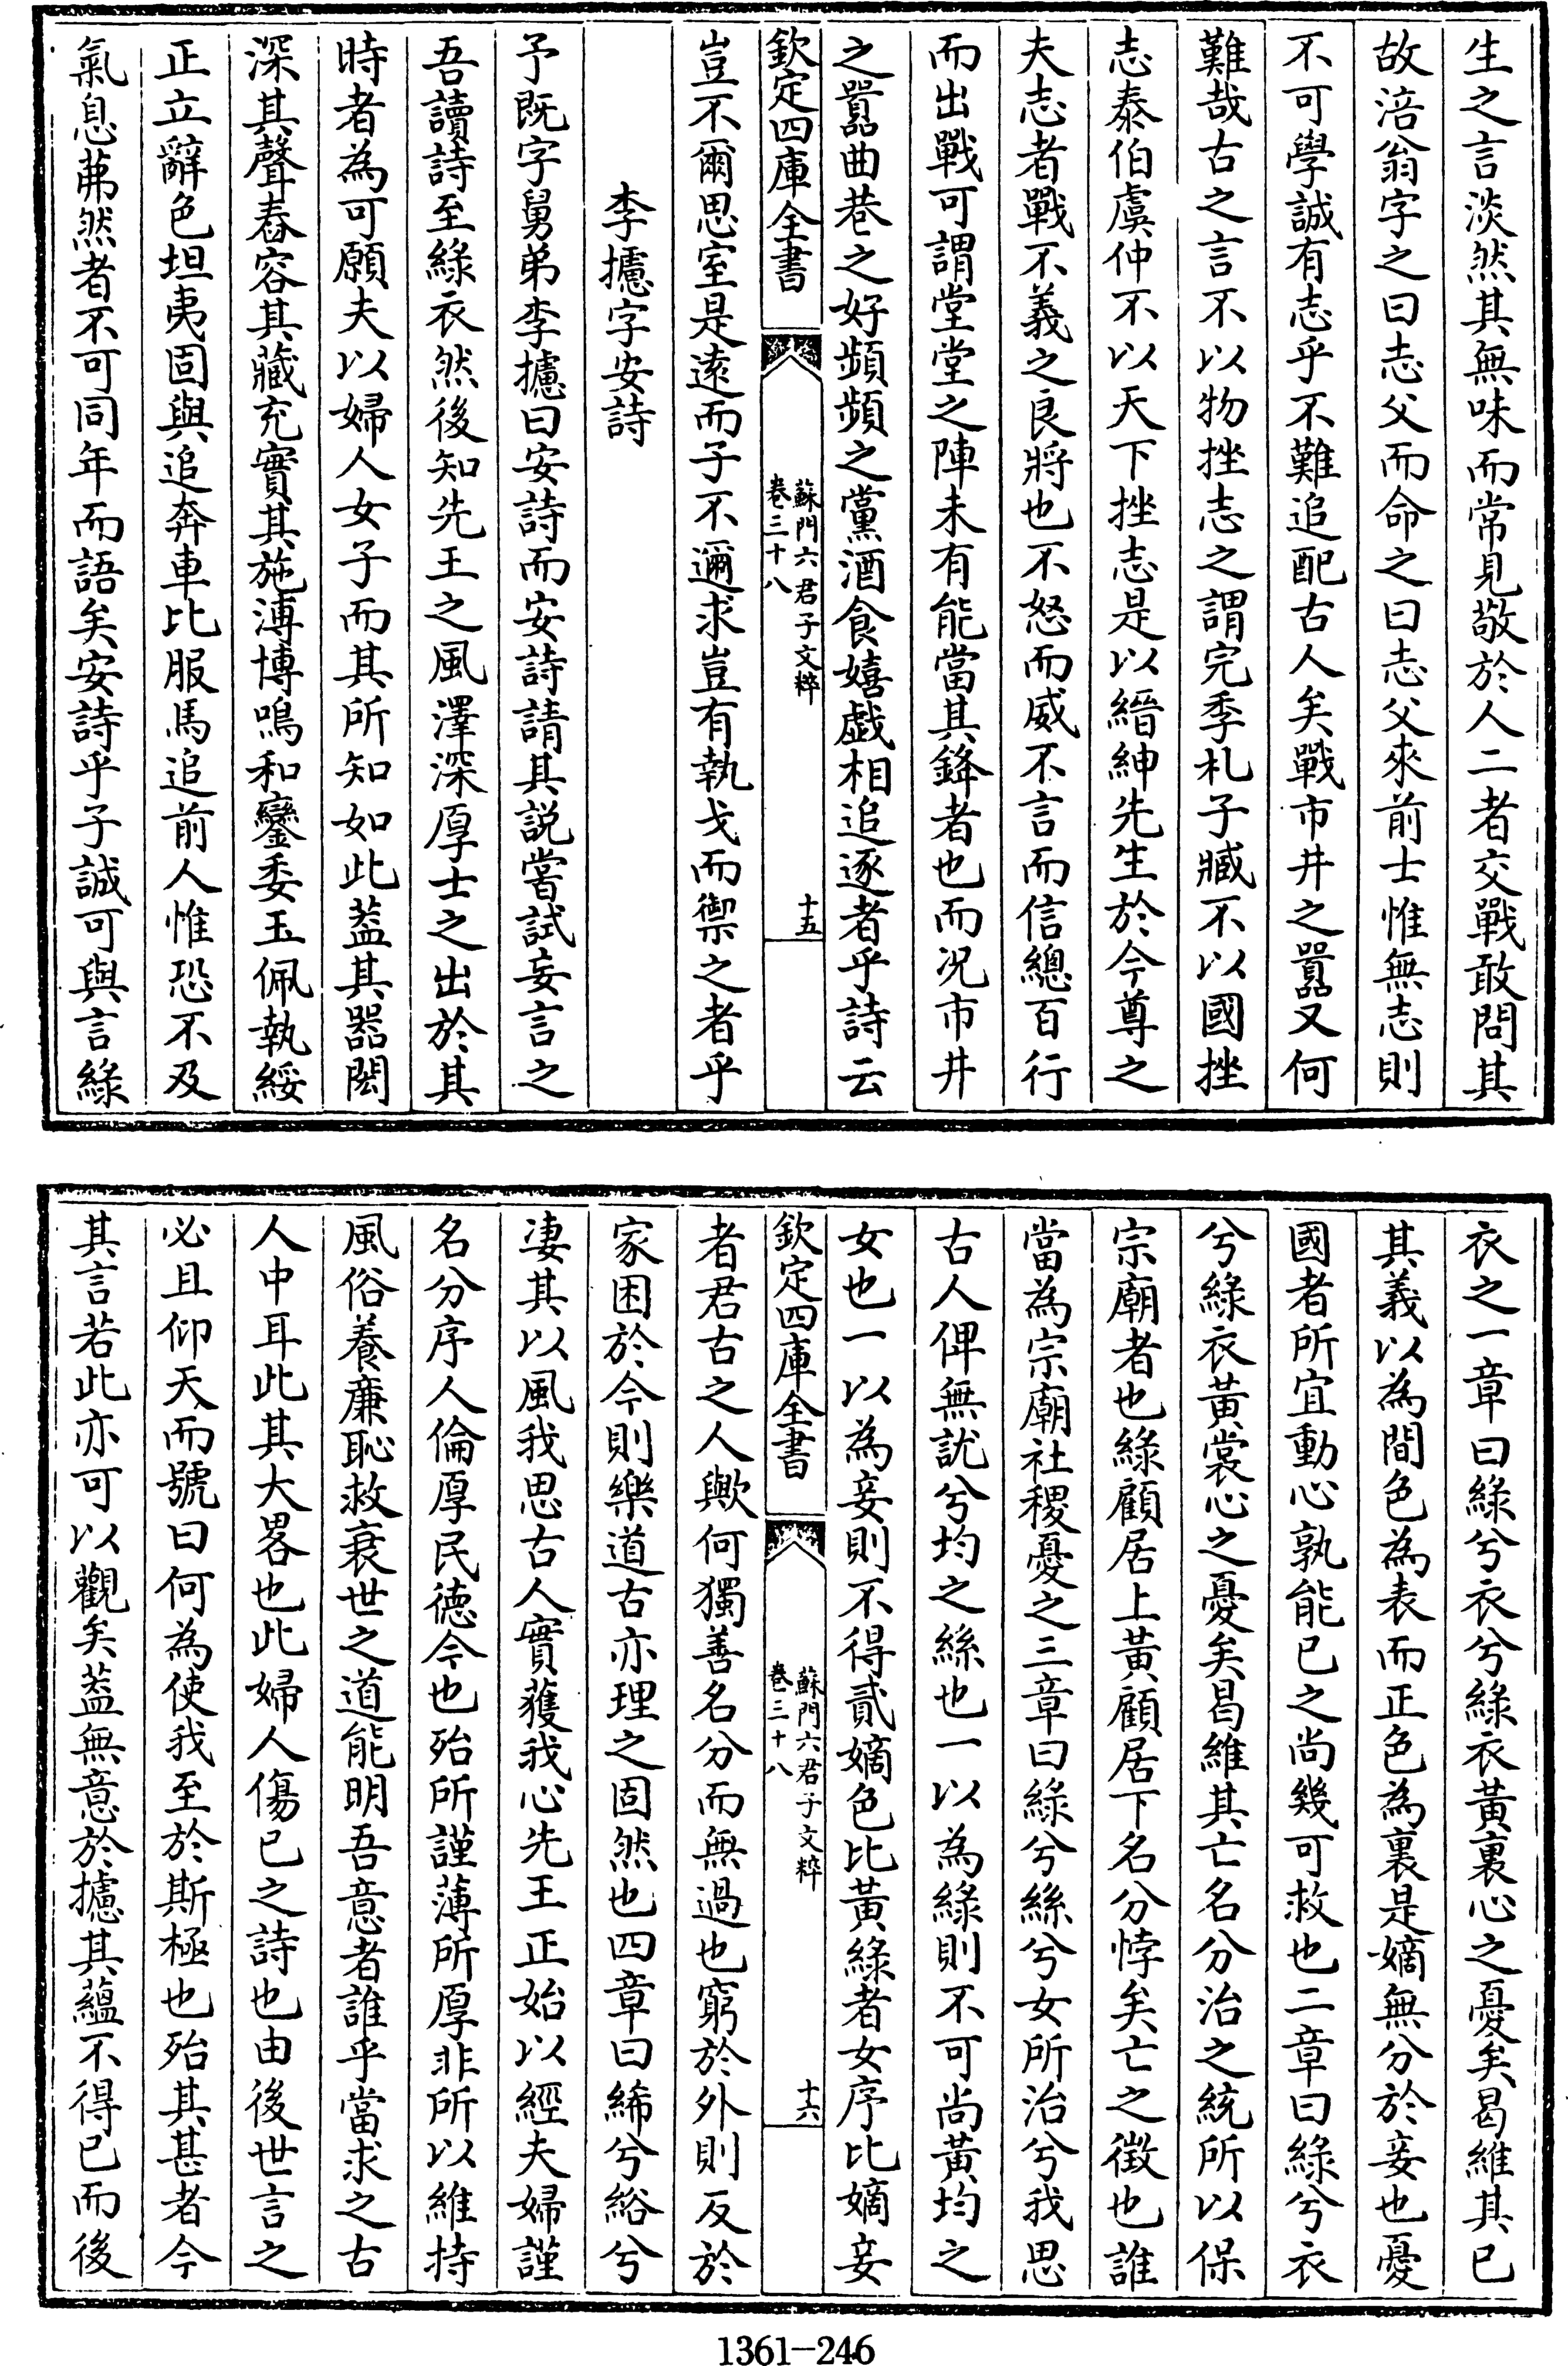 生之言淡然其無味而常見敬於人二者交戰敢問其
故涪翁字之曰志父而命之曰志父來前士惟無志則
不可學誠有志乎不難追配古人矣戰市井之囂又何
難哉古之言不以物挫志之謂完季札子臧不以國挫
志泰伯虞仲不以天下挫志是以縉紳先生於今尊之
夫志者戰不義之良將也不怒而威不言而信總百行
而出戰可謂堂堂之陣未有能當其鋒者也而況市井
之囂曲巷之好頻頻之黨酒食嬉戲相追逐者乎詩云
欽定四庫全書
蘇門六君子文粹
卷三十八
十五
豈不爾思室是遠而子不邇求豈有執戈而禦之者乎
李攄字安詩
予既字舅弟李攄曰安詩而安詩請其説嘗試妄言之
吾讀詩至綠衣然後知先王之風澤深厚士之出於其
時者為可願夫以婦人女子而其所知如此蓋其器閎
深其聲舂容其藏充實其施溥博鳴和鑾委玉佩執綏
正立辭色坦夷固與追奔車比服馬追前人惟恐不及
氣息茀然者不可同年而語矣安詩乎子誠可與言綠
衣之一章曰綠兮衣兮綠衣黃裏心之憂矣曷維其已
其義以為間色為表而正色為裏是嫡無分於妾也憂
國者所宜動心孰能已之尚幾可救也二章曰綠兮衣
兮綠衣黃裳心之憂矣曷維其亡名分治之統所以保
宗廟者也綠顧居上黃顧居下名分悖矣亡之徵也誰
當為宗廟社稷憂之三章曰綠兮絲兮女所治兮我思
古人俾無訧兮均之絲也一以為綠則不可尚黃均之
女也一以為妾則不得貳嫡色比黃綠者女序比嫡妾
欽定四庫全書
蘇門六君子文粹
卷三十八
十六
者君古之人歟何獨善名分而無過也窮於外則反於
家困於今則樂道古亦理之固然也四章曰絺兮綌兮
凄其以風我思古人實獲我心先王正始以經夫婦謹
名分序人倫厚民德今也殆所謹薄所厚非所以維持
風俗養廉恥救衰世之道能明吾意者誰乎當求之古
人中耳此其大畧也此婦人傷已之詩也由後世言之
必且仰天而號曰何為使我至於斯極也殆其甚者今
其言若此亦可以觀矣蓋無意於攄其蘊不得已而後
1361-246